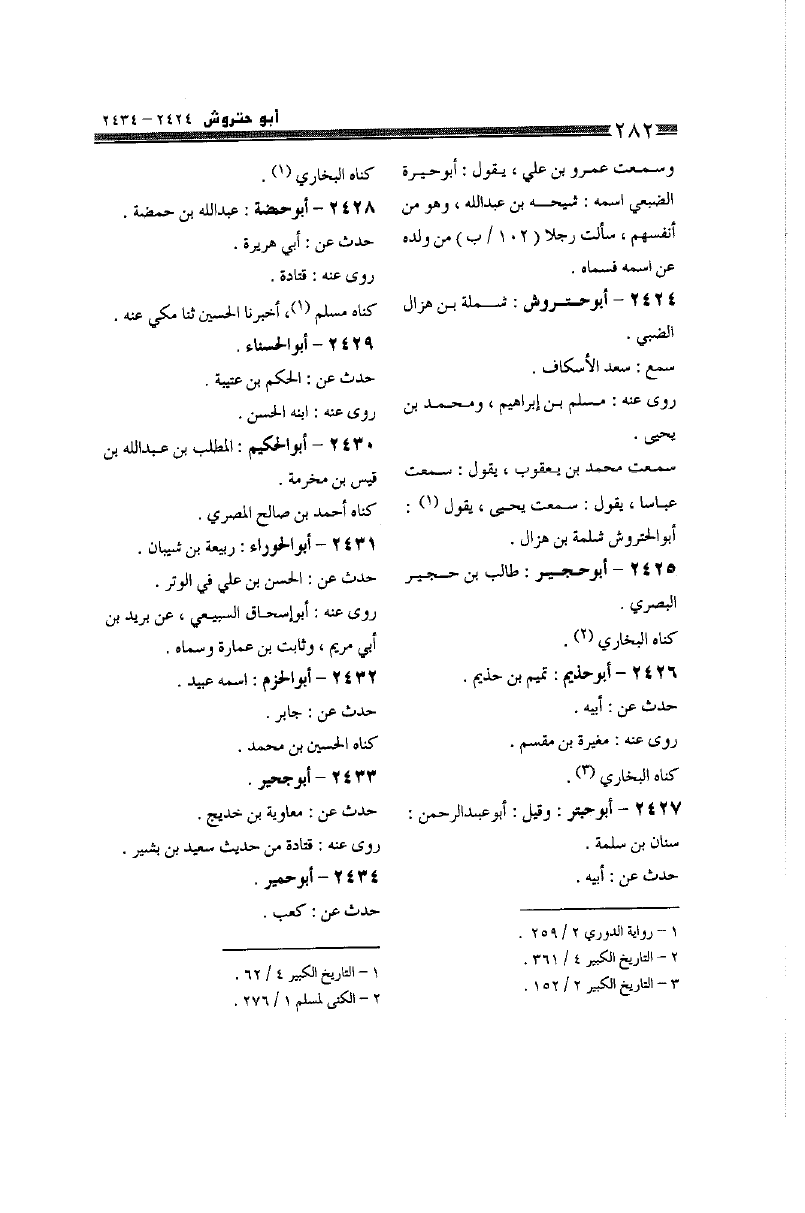 أبو حتروش ٢٤٢٤ – ٢٤٣٤
٢٨٢
وسمعت عمرو بن علي ، يقول : أبوحيرة
الضبعي اسمه : شيحه بن عبدالله ، وهو من
أنفسهم ، سألت رجلا ( ١٠٢ / ب ) من ولده
عن اسمه فسماه .
٢٤٢٤ – أبوحتروش : شملة بن هزال
الضبي .
سمع : سعد الأسكاف .
روى عنه : مسلم بن إبراهيم ، ومحمد بن
يحيى .
سمعت محمد بن يعقوب ، يقول : سمعت
عباسا ، يقول : سمعت يحيى ، يقول (١) :
أبوالحتروش شلمة بن هزال .
٢٤٢٥ – أبوحجير : طالب بن حجير
البصري .
كناه البخاري (٢) .
٢٤٢٦ – أبوحذيم : تميم بن حذيم .
حدث عن : أبيه .
روى عنه : مغيرة بن مقسم .
كناه البخاري (٣) .
٢٤٢٧ – أبوحبتر : وقيل : أبوعبدالرحمن :
سنان بن سلمة .
حدث عن : أبيه .
١ – رواية الدوري ٢ / ٢٥٩ .
٢ – التاريخ الكبير ٤ / ٣٦١ .
٣ – التاريخ الكبير ٢ / ١٥٢ .
كناه البخاري (١) .
٢٤٢٨ – أبوحمضة : عبدالله بن حمضة .
حدث عن : أبي هريرة .
روى عنه : قتادة .
كناه مسلم (١)، أخبرنا الحسين ثنا مكي عنه .
٢٤٢٩ – أبوالحسناء .
حدث عن : الحكم بن عتيبة .
روى عنه : ابنه الحسن .
٢٤٣٠ – أبوالحكيم : المطلب بن عبدالله بن
قيس بن مخرمة .
كناه أحمد بن صالح المصري .
٢٤٣١ – أبوالحوراء : ربيعة بن شيبان .
حدث عن : الحسن بن علي في الوتر .
روى عنه : أبوإسحاق السبيعي ، عن بريد بن
أبي مريم ، وثابت بن عمارة وسماه .
٢٤٣٢ – أبوالحزم : اسمه عبيد .
حدث عن : جابر .
كناه الحسين بن محمد .
٢٤٣٣ – أبوجحير .
حدث عن : معاوية بن خديج .
روى عنه : قتادة من حديث سعيد بن بشير .
٢٤٣٤ – أبوحمير .
حدث عن : كعب .
١ – التاريخ الكبير ٤ / ٦٢ .
٢ – الكنى لمسلم ١ / ٢٧٦ .